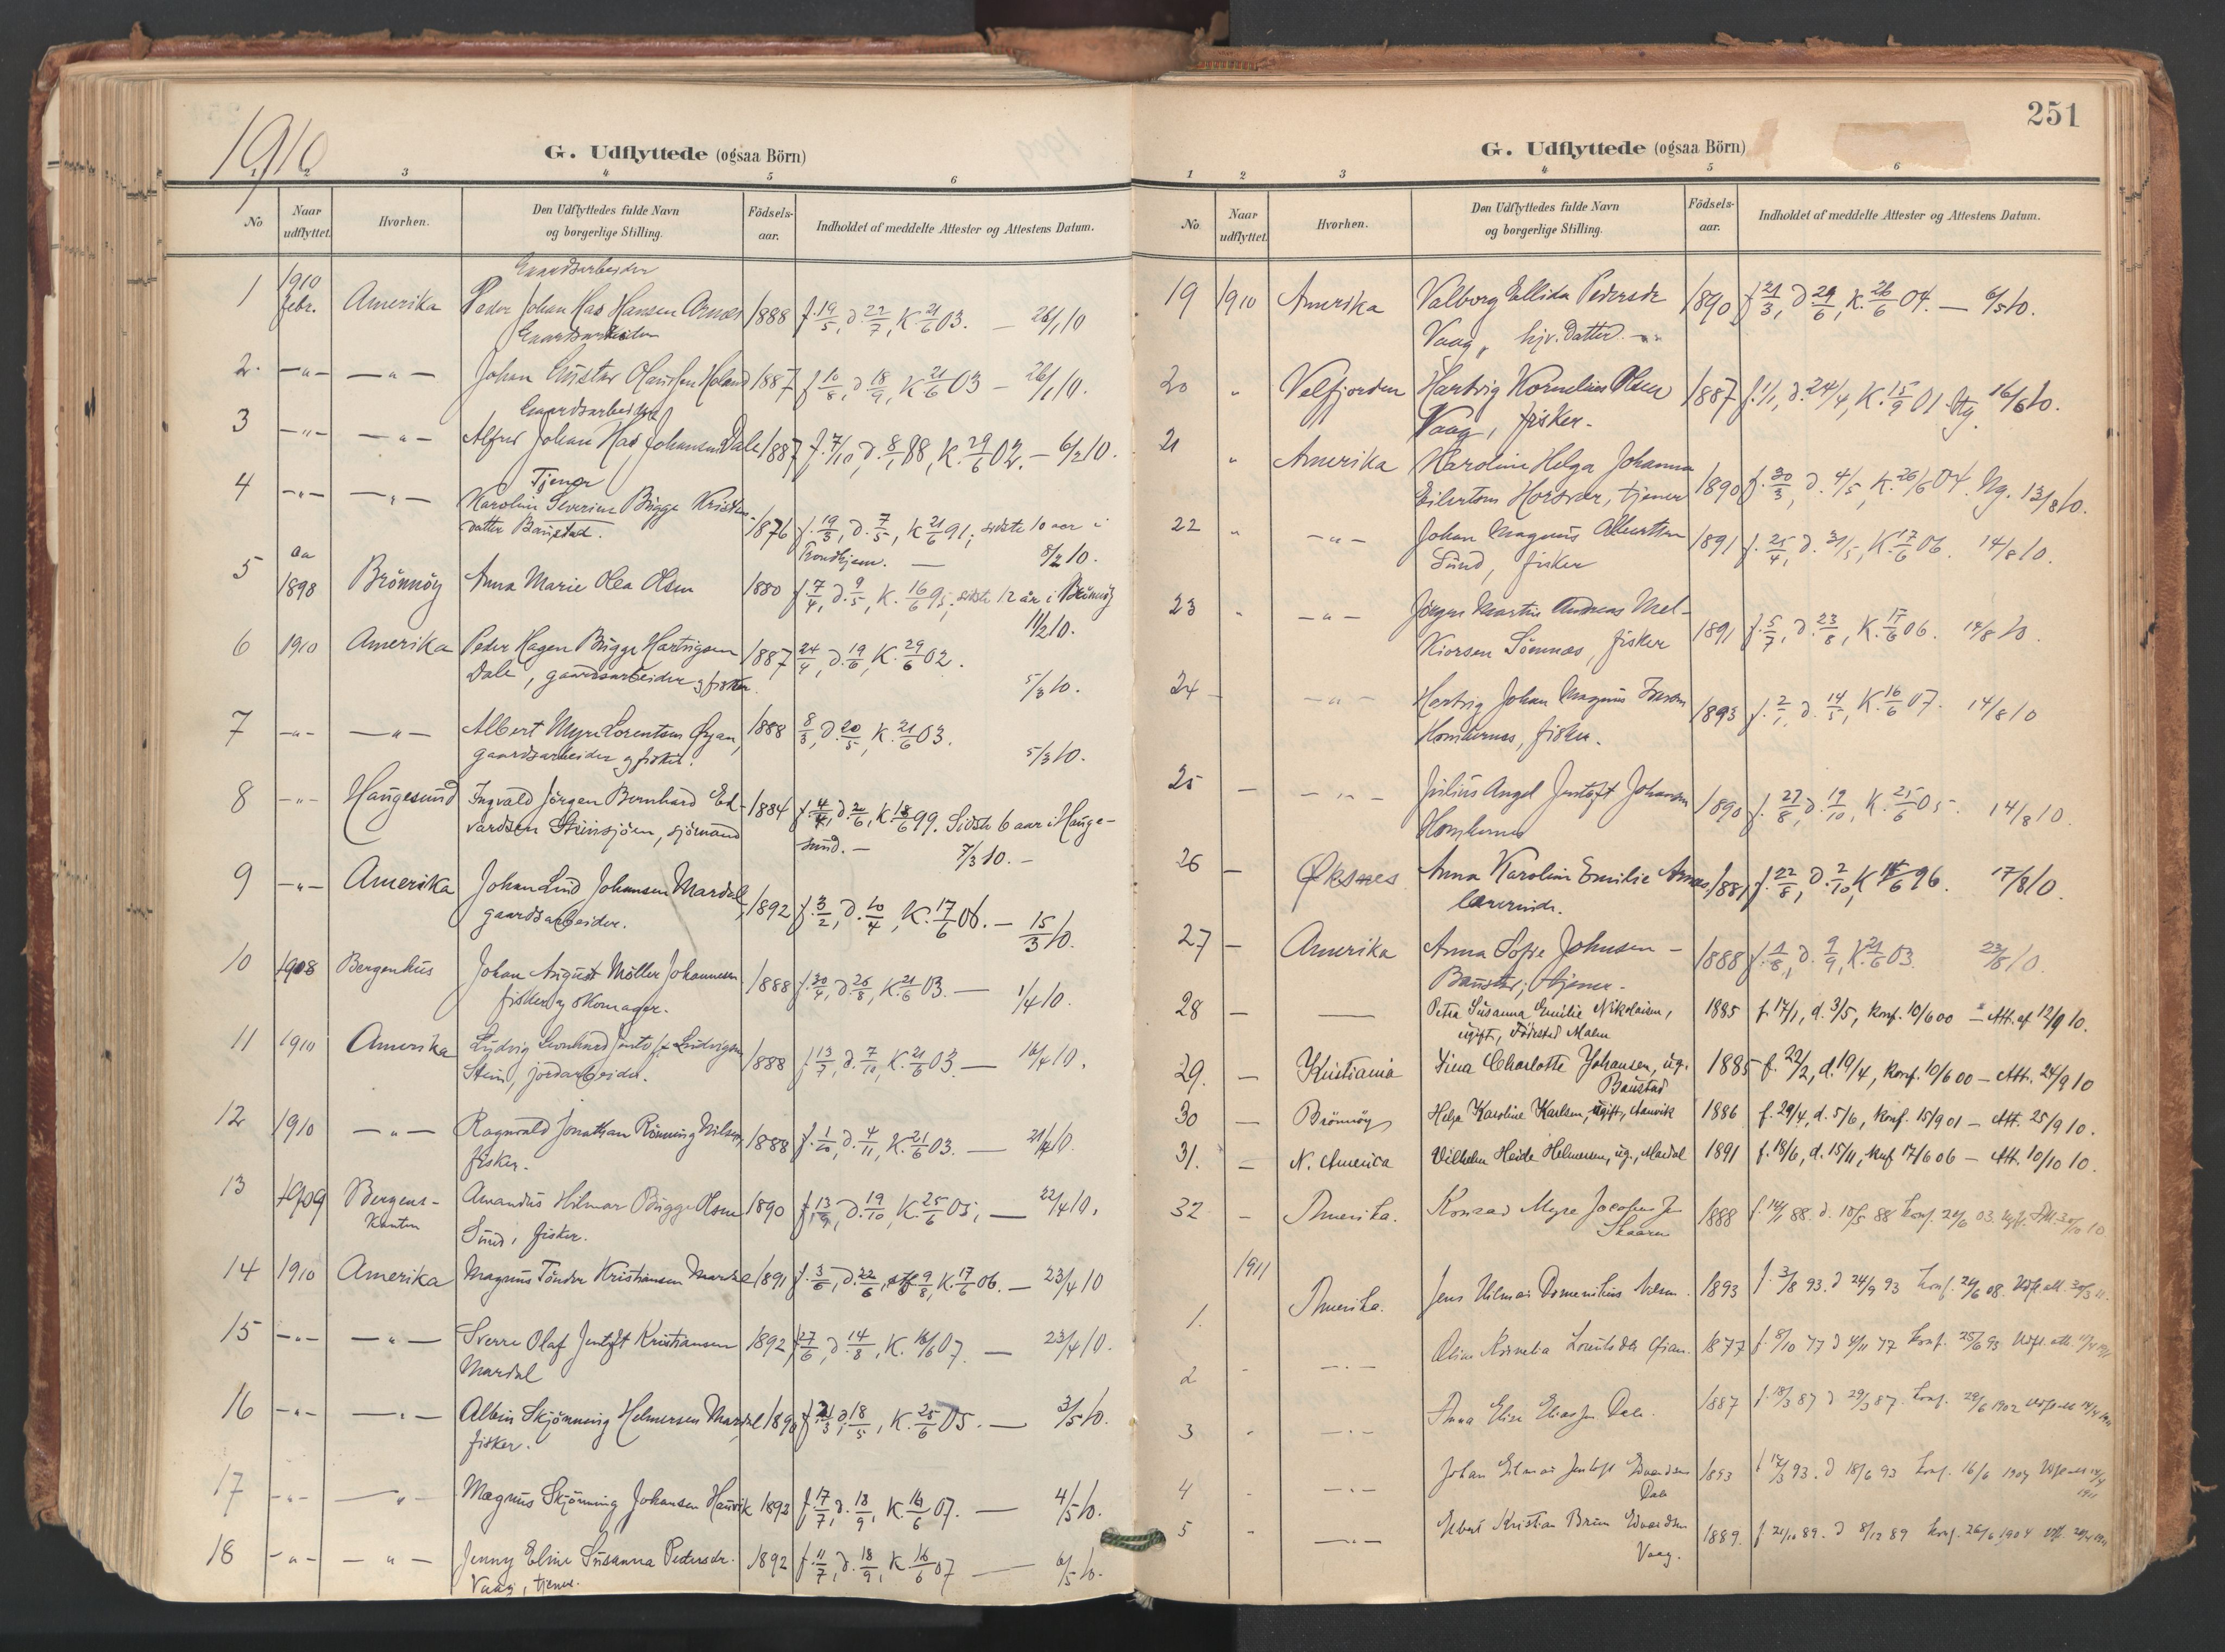 1910
G. Udflyttede (ogsaa Börn)
1 2 3 4 5 6
No
Naar udflyttet.
Hvorhen.
Den Udflyttedes fulde Navn og borgerlige Stilling.
Födsels-aar.
Indholdet af meddelte Attester og Attestens Datum.
Gaardsarbeider
1 1910 febr. Amerika Peder Johan Hansen Arnæs 1888 f. 19/5, d. 22/7, K 21/6 03. — 26/1 10
Gaardsarbeider
2. —„— —„— Johan Gustav Olaussen Holand 1887 f. 10/8, d. 18/9, K 21/6 03 — 26/1 10.
Gaardsarbeider
3 —„— —„— Alfred Johan Johansen Dale 1887 f. 7/10, d. 8/1 88, K. 29/6 02. — 6/2 10.
Tjener
4 —„— —„— Karolin Severine Bügge Kristen-
datter Baustad. 1876 f. 19/3, d. 7/5, K 21/6 91, sidste 10 aar i
Trondhjem. — 8/2 10.
5 ca 1898 Brönnöy Anna Marie Olea Olsen 1880 f. 7/4, d. 9/5, K. 16/6 95, sidste 12 år i Brönnöy
11/2 10.
6 1910 Amerika Peder Hagen Bügge Hartvigsen 1887 24/4, d. 19/6, K. 29/6 02.
Dale, gaardsarbeider og fisker. 5/3 10.
7 —„— —„— Albert Myre Lorentsen Øyan, 1888 8/3, d. 20/5, K. 21/6 03.
gaardsarbeider og fisker. 5/3 10.
8 —„— Haugesund Ingvald Jörgen Bernhard Ed- 1884 f. 4/4, d. 2/6, K. 18/6 99. Sidste 6 aar i Hauge-
vardsen Steinsjöen, sjömand sund. — 7/3 10. —
9 —„— Amerika Johan Lind Johansen Mardal, 1892 f. 3/2, d. 10/4, K. 17/6 06. — 15/3 10.
gaardsarbeider.
10 1908 Bergenhus Johan August Möller Johannesen 1888 f. 30/4, d. 26/8, K. 21/6 03. — 1/4 10.
fisker og skomager.
11 1910 Amerika Ludvig Leonhard Jentoft Ludvigsen 1888 f. 13/7, d. 7/10, K. 21/6 03. — 16/4 10.
Stein, jordarbeider.
12 1910 —„— Ragnvald Jonathan Rönning Nilsen, 1888 f. 1/10, d. 4/11, K. 21/6 03. — 21/4 10
fisker.
13 1909 Bergens-
kanten Amandus Hilmar Bügge Olsen 1890 f. 13/9, d. 19/10, K. 25/6 05, — 22/4 10.
Sund, fisker.
14 1910 Amerika Magnus Tönder Kristiansen Mardal 1891 f. 3/6, d. 22/6, stf 9/8, K. 17/6 06. — 23/4 10
15 —„— —„— Sverre Olaf Jentoft Kristiansen 1892 f. 27/6, d. 14/8, K. 16/6 07. — 23/4 10.
Mardal
16 —„— —„— Albin Skjönning Helmersen Mardal 1890 f. 21/3, d. 18/5, K. 25/6 05. — 3/5 10.
fisker.
17 —„— —„— Magnus Skjönning Johansen Hauvik 1892 f. 17/7, d. 18/9, K. 16/6 07. — 4/5 10.
18 —„— —„— Jenny Eline Susanna Pedersdr. 1892 f. 11/7, d. 18/9, K 16/6 07 — 6/5 10.
Vaag, tjener.
251
G. Udflyttede (ogsaa Börn)
1 2 3 4 5 6
No
Naar udflyttet.
Hvorhen.
Den Udflyttedes fulde Navn og borgerlige Stilling.
Födsels-aar.
Indholdet af meddelte Attester og Attestens Datum.
19 1910 Amerika Valborg Ellida Pedersdr 1890 f. 21/3, d. 29/6, K. 26/6 04. — 6/5 10.
Vaag, hjv. datter
20 „ Velfjorden Hartvig Kornelius Olsen 1887 f. 1/1, d. 24/4, K. 15/9 01. Ug. 16/6 10.
Vaag, fisker.
21 „ Amerika Karoline Helga Johanna
Eilertsen Horsvær, tjener 1890 f. 30/3, d. 4/5, K. 26/6 04. Ug. 13/8 10.
22 „ —„— Johan Magnus Albertsen 1891 f. 25/4, d. 31/5, K. 17/6 06. 14/8 10.
Sund, fisker
23 „ —„— Jörgen Martin Andreas Mel-
kiorsen Sömnæs, fisker 1891 f. 5/7, d. 23/8, K. 17/6 06. 14/8 10.
24 — —„— Hartvig Johan Magnus 1893 f. 2/1, d. 14/5, K. 16/6 07. 14/8 10
Homhornes, fisker.
25 — —„— Julius Angel Jentoft Johansen 1890 f. 27/8, d. 19/10, K. 25/6 05. 14/8 10.
26 — Øksnes Anna Karolin Emilie Arnæs, 1881 f. 22/8, d. 2/10, K 14/6 96. 17/8 10.
lærerinde.
27 — Amerika Anna Sofie Johnsen — 1888 f. 1/8, d. 9/9, K. 21/6 03. 23/8 10.
Baustad, tjener.
28 — — Petra Susanna Emilie Nikolaisen, 1885 f. 17/1, d. 3/5, konf. 10/6 00 — Att. af 12/9 10.
ugift, Födested Malm
29. — Kristiania Dina Charlotte Johansen, ug. 1885 f. 22/2, d. 19/4, konf. 10/6 00 — Att. 24/9 10
Baustad
30 — Brönnöy Helga Karoline Karlsen, ugift, Aanvik 1886 f. 29/4, d. 5/6, konf. 15/9 01 — Att. 25/9 10.
31. — N. America Vilhelm Heide Helmersen, ug., Mardal 1891 f. 18/6, d. 15/11, konf 17/6 06 — Att. 10/10 10.
32 — Amerika. Konrad Myre Jacobsen 1888 f. 14/1 88. d. 10/5 88 konf. 21/6 03. Att. 30/10 10
Skaaren
1911
1. Amerika. Jens Hilmar Domenikus Nilsen. 1893 f. 3/8 93. d 24/9 93 konf. 21/6 08. Udfl. att. 30/3 11.
2 - —„— Oline Kornelia Lorentsdtr Øian. 1877 f. 8/10 77 d 4/11 77 konf. 25/6 93 Udfl. att. 11/4 1911
3 - —„— Anna Elise Eliassen Dale. 1887 f. 18/3 87 d 29/5 87. konf. 29/6 1902 Udfl. att 14/4 1911
4 - —„— Johan Hilmar Jentoft Edvardsen 1893 f 12/3 93. d 18/6 93 konf. 16/6 1907 Udfl. att 14/4 1911
Dale
5 - —„— Elbert Kristian Brun Edvardsen 1889. f 21/10 89. d 8/12 89 konf. 26/6 1904
Vaag.